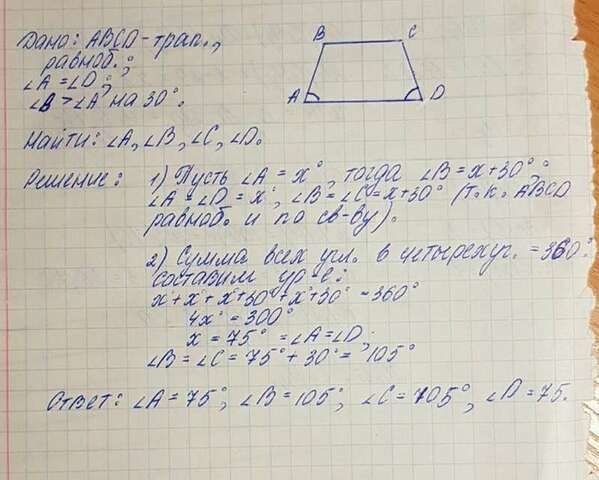 Дано: ABCD - трап.,
равноб.;
∠A = ∠D;
∠B > ∠A на 30°.
B C
A D
Найти: ∠A, ∠B, ∠C, ∠D.
Решение: 1) Пусть ∠A = x°, тогда ∠B = x+30°;
∠A = ∠D = x°, ∠B = ∠C = x+30° (т.к. ABCD
равноб. и по св-ву).
2) Сумма всех угл. в четырехуг. = 360°.
составим ур-е:
x + x + x+30° + x+30° = 360°
4x = 300°
x = 75° = ∠A = ∠D;
∠B = ∠C = 75° + 30° = 105°
Ответ: ∠A = 75°, ∠B = 105°, ∠C = 105°, ∠D = 75.